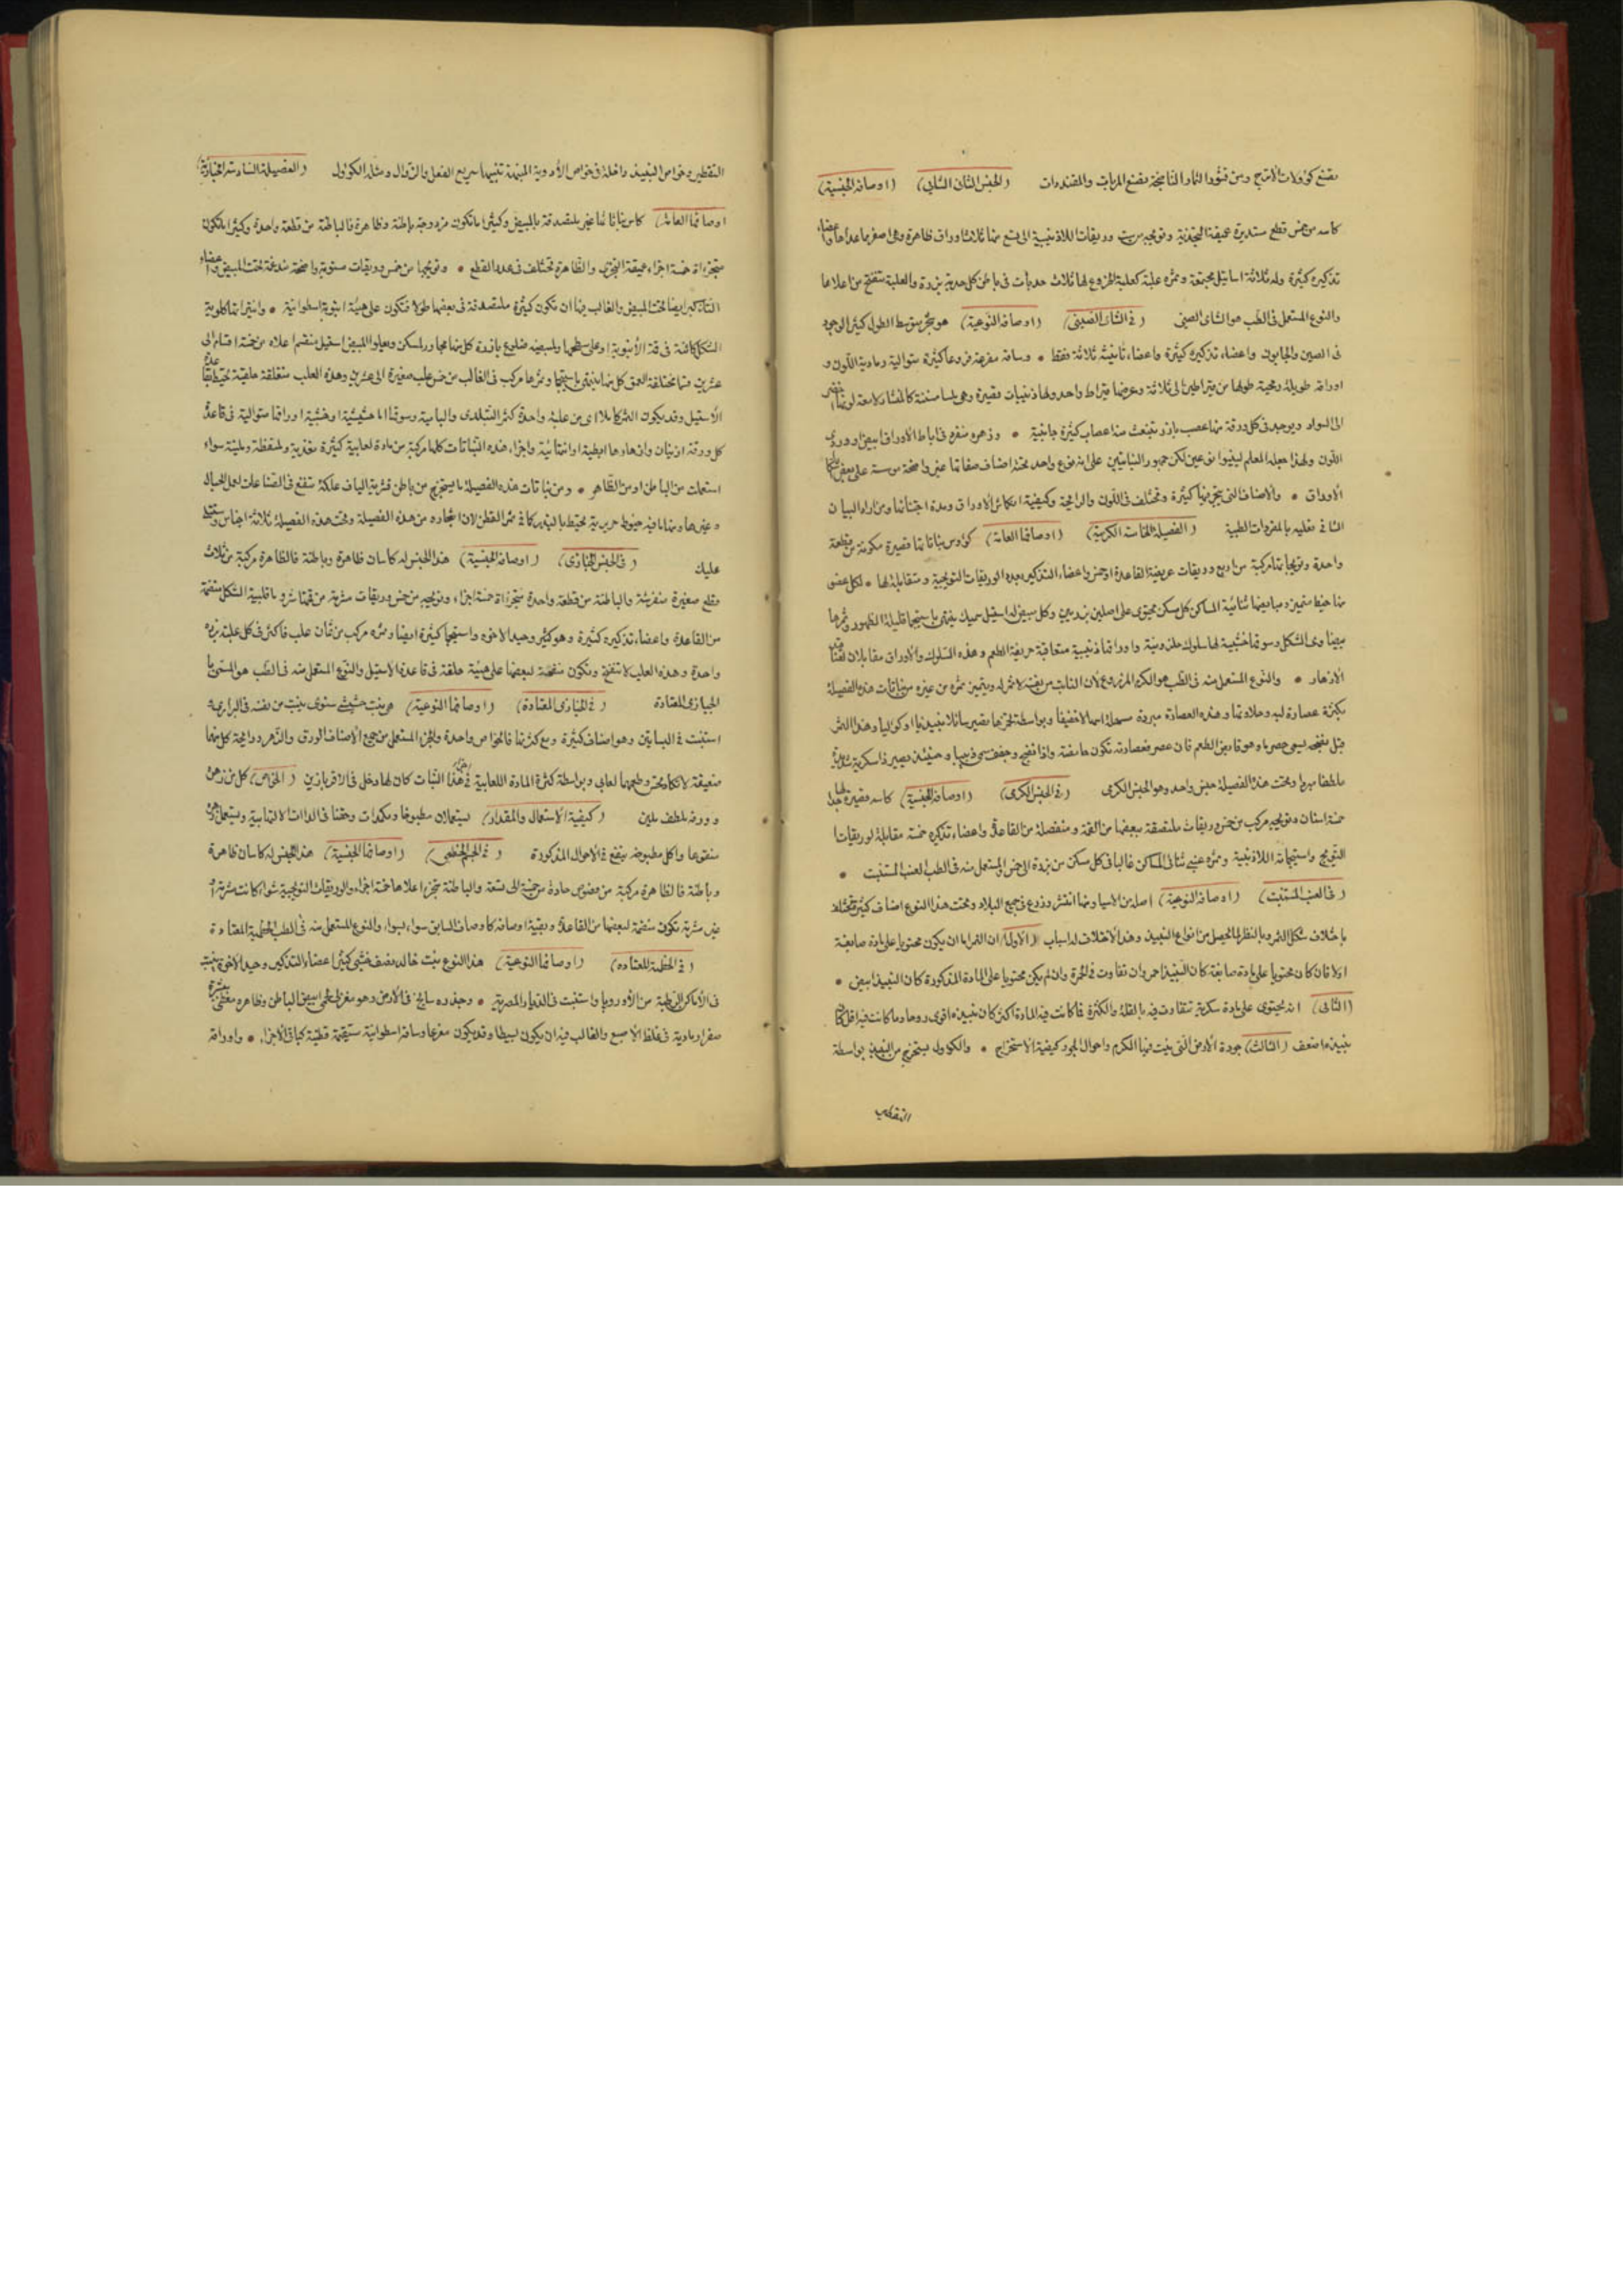 تصنع كؤولات الاترج ومن قشور الثمار الناضجة تصنع المربات والمقندات (الجنس الثانى الشايى) (اوصافه الجنسية)
كاسه من خمس قطع مستديرة عميقة التجزئة وتويجه من ست وريقات الى تسع منها ثلاثة اوراق ظاهرة وهى اصغر مما عداها واعضاء
تذكيره كثيرة وله ثلاثة اساتيل مجتمعة وثمره علبة كعلبة الخروع لها ثلاث حدبات فى باطن كل حدبة بزرة والعلبة تنفتح من اعلاها
والنوع المستعمل فى الطب هو الشاى الصينى (فى الشاى الصينى) (اوصافه النوعية) هو شجر متوسط الطول كثير الوجود
فى الصين والجابون واعضاء تذكيره كثيرة واعضاء تانيثه ثلاثة فقط • وساقه متفرعة فروعا كثيرة متوالية رمادية اللون و
اوراقه طويلة رمحية طولها من قيراطين الى ثلاثة وعرضها قيراط واحد ولها ذنيبات قصيرة وهى ملسا مسننة كالمنشار لامعة لونها اخضر
الى السواد ويوجد فى كل ورقة منها عصب بارز تنبعث منه اعصاب كثيرة جانبية • وزهره متفرع فى اباط الاوراق ابيض او وردى
اللون ولهذا جعله المعلم لينيوا نوعين لكن جمهور النباتيين على انه نوع واحد تحته اصناف صفاتها غير واضحة مؤسسة على بعض
الاوراق • والاصناف التى يتجر بها كثيرة وتختلف فى اللون والرايحة وكيفية انكماش الاوراق ومدة اجتنائها ومن اراد البيان
الشافى فعليه بالمفردات الطبية (الفصيلة الخامسة الكرمية) (اوصافها العامة) كؤوس نباتاتها قصيرة مكونة من قطعة
واحدة وتويجاتها مركبة من اربع وريقات عريضة القاعدة او خمس واعضاء التذكير بعدد الوريقات التويجية ومتقابلة لها • لكل عضو
منها خيط متميز ومبايضها ثنائية المساكن كل مسكن يحتوى على اصلين بزريين وكل مبيض له استيل سميك ينتهى باستيجما قليلة الظهور وثمرها
بيضاوى الشكل وسوقها خشبية لها سلوك حلزونية واوراقها ذنيبية متعاقبة حريفة الطعم وهذه السلوك والاوراق مقابلان لعناقيد
الازهار • والنوع المستعمل منه فى الطب هو الكرم المزروع لان النابت من نفسه لا ثمر له ويتميز ثمره من غيره من نباتات هذه الفصيلة
بكثرة عصارة لبه وحلاوتها وهذه العصارة مبردة مسهلة اسهالا خفيفا وبواسطة تخمرها تصير سائلا نبيذيا او كوليا وهذا الثمر
قبل نضجه يسمى حصرما وهو قابض الطعم فان عصر فعصارته تكون حامضة واذا نضج وجفف سمى زبيبا وحينئذ يصير ذا سكرية
ملطفا مبردا وتحت هذه الفصيلة جنس واحد وهو الجنس الكرمى (فى الجنس الكرمى) (اوصافه الجنسية) كاسه قصيرة لها
خمسة اسنان وتويجه مركب من خمس وريقات ملتصقة ببعضها من القمة ومنفصلة من القاعدة واعضاء تذكيره خمسة مقابلة لوريقات
التويج واستيجماته اللاذنيبية وثمره عنبى ثنائى المساكن غالبا فى كل مسكن من بزرة الى خمس والمستعمل منه فى الطب العنب المستنبت •
(فى العنب المستنبت) (اوصافه النوعية) اصله من الاسيا ومنها انتشر وزرع فى جميع البلاد وتحت هذا النوع اصناف كثيرة تختلف
باختلاف شكل الثمر وبالنظر لما تحصل من انواع النبيذ وهذا الاختلاف له اسباب (الاول) ان الثمر اما ان يكون محتويا على مادة صابغة
اولا فان كان محتويا على مادة صابغة كان النبيذ احمر وان تفاوت فى الحمرة وان لم يكن محتويا على المادة المذكورة كان النبيذ ابيض •
(الثانى) انه يحتوى على مادة سكرية تتفاوت فيه بالقلة والكثرة فما كانت فيه المادة اكثر كان نبيذه اقوى روحا وما كانت فيه اقل كان
نبيذه اضعف (الثالث) جودة الارض التى ينبت فيها الكرم واحوال الجو وكيفية الاستخراج • والكوول يستخرج من النبيذ بواسطة
التقطير
التقطير وخواص النبيذ داخلة فى خواص الادوية المنبهة تنبيها سريع الفعل والزوال ومثله الكوول (الفصيلة السادسة الخبازية)
(اوصافها العامة) كاس نباتاتها غير ملتصقة بالمبيض وكثيرا ما تكون مزدوجة باطنة وظاهرة فالباطنة من قطعة واحدة وكثيرا ما تكون
متجزاة خمسة اجزاء عميقة التجزى والظاهرة تختلف فى عدد القطع • وتويجها من خمس وريقات مستوية واضحة مندغمة تحت المبيض واعضاء
التذكير ايضا تحت المبيض والغالب فيها ان تكون كثيرة ملتصقة فى بعضها طولا فتكون على هيئة انبوبة اسطوانية • وانتيراتها كلوية
الشكل كائنة فى قمة الانبوبة او على سطحها ولمبيضه ضلوع بارزة كل منها مجاور لمسكن ويعلو المبيض استيل ينقسم اعلاه من خمسة اقسام الى
عشرين قسما مختلفة العمق كل منها ينتهى باستيجما وثمرها مركب فى الغالب من خمس علب صغيرة الى عشرين وهذه العلب متعلقة حلقية تحيط بقاعدة
الاستيل وقد يكون الثمر كاملا اى من علبة واحدة كثمر التيلدى والبامية وسوقها اما حشيشية او خشبية اوراقها متوالية فى قاعدة
كل ورقة اذينان وازهارها ابطية او انتهائية واجزاء هذه النباتات كلها مركبة من مادة لعابية كثيرة مغذية وملطفة وملينة سواء
استعملت من الباطن او من الظاهر • ومن نباتات هذه الفصيلة ما يستخرج من باطن قشرته الياف علكة تنفع فى الصناعات لعمل الحبال
وغيرها ومنها ما فيه خيوط حريرية تحيط بالبزر كما فى ثمر القطن لان اشجاره من هذه الفصيلة وتحت هذه الفصيلة ثلاثة اجناس ستتلى
عليك (فى الجنس الخبازى) (اوصافه الجنسية) هذا الجنس له كاسان ظاهرة وباطنة فالظاهرة مركبة من ثلاث
قطع صغيرة منفرشة والباطنة من قطعة واحدة متجزاة خمسة اجزاء وتويجه من خمس وريقات مشرمة من قمتها شرما قلبية الشكل منضمة
من القاعدة واعضاء تذكيره كثيرة وهو كثير وحيد الاخوة واستيجماته كثيرة ايضا وثمره مركب من ثمان علب فاكثر فى كل علبة بزرة
واحدة وهذه العلب لا تنفتح وتكون منضمة لبعضها على هيئة حلقة فى قاعدة الاستيل والنوع المستعمل منه فى الطب هو المسمى
الخبازى المعتادة (فى الخبازى المعتادة) (اوصافها النوعية) هى نبت حشيشى سنوى ينبت من نفسه فى البرارى و
استنبت فى البساتين وهو اصناف كثيرة ومع كثرتها فالخواص واحدة والجزء المستعمل من جميع الاصناف الورق والزهر ورايحة كل منهما
ضعيفة وطعمهما لعابى وبواسطة كثرة المادة اللعابية فى هذا النبات كان لها دخل فى الاقرباذين (الخواص) كل من زهره
وورقه ملطف ملين (كيفية الاستعمال والمقدار) يستعملان مطبوخا وتكمدات وحقنا فى الداات الالتهابية ويستعمل زهره
منقوعا واكل مطبوخه ينفع فى الاحوال المذكورة (فى الجنس الخطمى) (اوصافها الجنسية) هذا الجنس له كاسان ظاهرة
وباطنة فالظاهرة مركبة من فصوص حادة من خمسة الى تسعة والباطنة متجزء اعلاها خمسة اجزاء والوريقات التويجية سواء كانت مشرمة او
غير مشرمة تكون منضمة لبعضها من القاعدة وبقية اوصافه كاوصاف السابق سواء بسواء والنوع المستعمل منه فى الطب الخطمية المعتادة
(فى الخطمية المعتاده) (اوصافها النوعية) هذا النوع نبت خالد نصف خشبى كثير اعضاء التذكير وحيد الاخوة ينبت
فى الاماكن الرطبة من الاوروبا واستنبت فى الديار المصرية • وجذره سايخ فى الارض وهو مغزلى لحمى ابيض الباطن وظاهره مغطى بقشرة
صفرا رمادية فى غلظ الاصبع والغالب فيه ان يكون بسيطا وقد يكون متفرعا وساقه اسطوانية مستقيمة قطنية كباقى الاجزاء • واوراقه